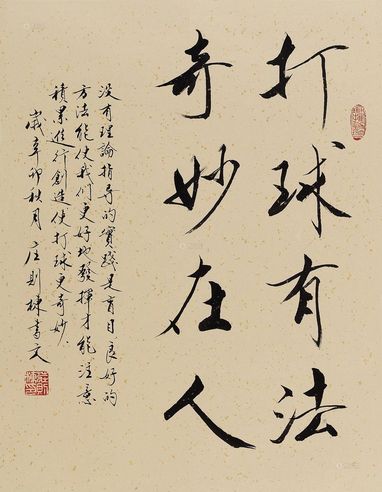 打球有法
奇妙在人
没有理論指导的實踐是盲目良好的
方法能使我们更好地發揮才能注意
積累進行創造使打球更奇妙.
歲辛卯秋月庄則棟書文